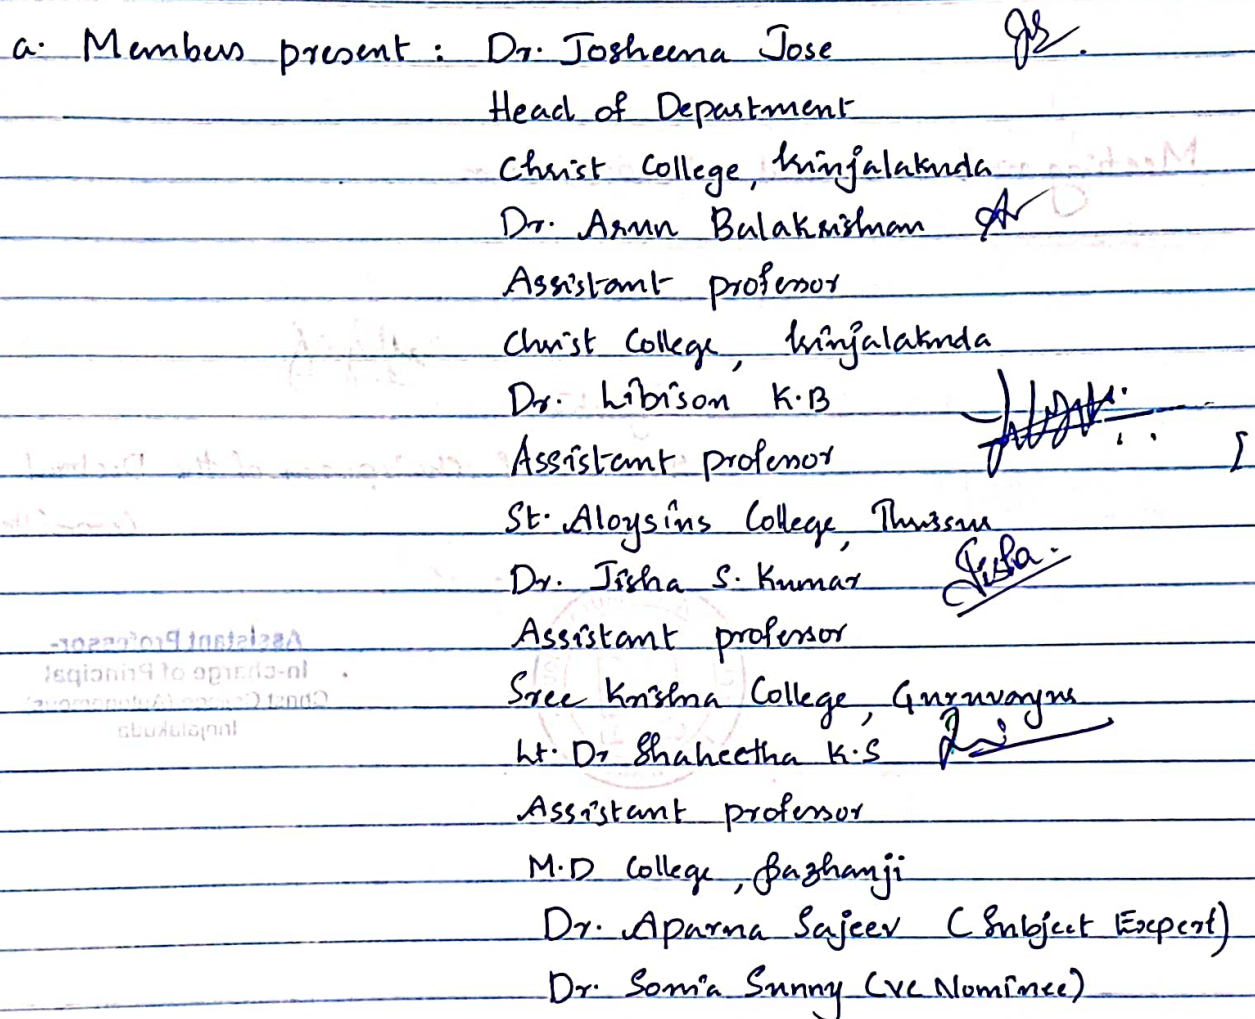 a. Members present : Dr. Josheena Jose
Head of Department
Christ College, Irinjalakuda
Dr. Arun Balakrishnan
Assistant professor
Christ College, Irinjalakuda
Dr. Libison K.B
Assistant professor
St. Aloysius College, Thrissur
Dr. Jisha S. Kumar Jisha.
Assistant professor
Sree Krishna College, Guruvayur
Lt. Dr Shaheetha K.S
Assistant professor
Assistant Professor-
In-charge of Principal
Christ College (Autonomous)
Irinjalakuda
M.D College, Pazhanji
Dr. Aparna Sajeev (Subject Expert)
Dr. Sonia Sunny (VC Nominee)